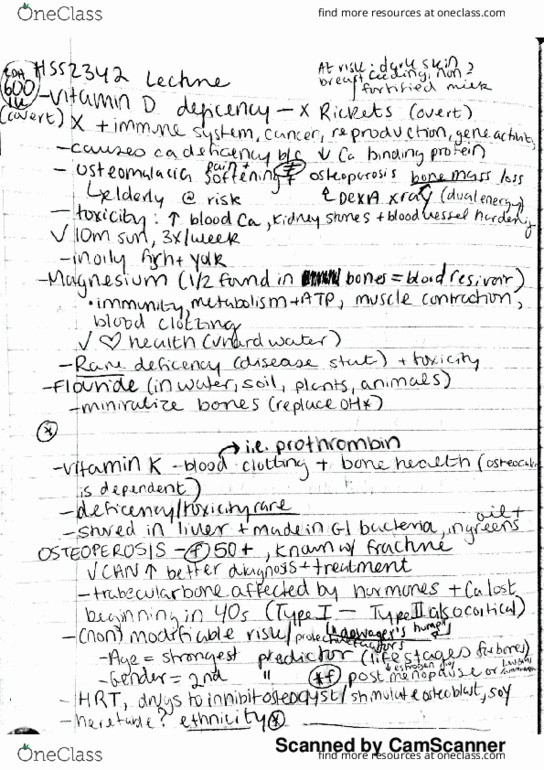 OneClass
find more resources at oneclass.com
HSS2342 Lecture
At risk: dark skin,
breastfeeding, non-
fortified milk
RDA
600
IU
-vitamin D deficency - x Rickets (overt)
(covert) X + immune system, cancer, reproduction, gene activity
-causes ca deficency b/c ↓ Ca binding protein
- osteomalacia pain + softening ≠ osteoporosis bone mass loss
↳elderly @ risk DEXA xray (dual energy)
- toxicity: ↑ blood Ca, kidney stones + blood vessel hardening
√ 10m sun, 3x/week
-in oily fish + yolk
-Magnesium (1/2 found in bones = blood resivoir)
• immunity, metabolism + ATP, muscle contraction,
blood clotting
√ ♡ health (in hard water)
-Rare deficency (disease stat) + toxicity
-Flouride (in water, soil, plants, animals)
-miniralize bones (replace OH*)
*
→ i.e. prothrombin
-vitamin K - blood clotting + bone health (osteocalcin
is dependent)
-deficency/toxicity rare
-stored in liver + made in GI bacteria, in greens oil +
OSTEOPEROSIS - f 50+, known w/ fracture
√ CAN ↑ better diagnosis + treatment
-trabecular bone affected by hormones + Ca lost
beginning in 40s (Type I - Type II also cortical)
-(non) modifiable risk/protective factors "dowager's hump"
-Age = strongest predictor (life stages for bones)
-Gender = 2nd " *f post menopause or
-HRT, drugs to innibit osteoclyst/stimulate osteoblast, soy
-heretable? ethnicity *
OneClass
Scanned by CamScanner
find more resources at oneclass.com